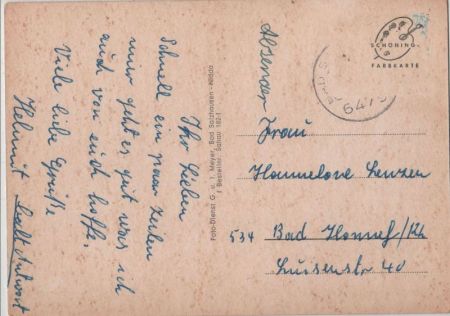 Ihr Lieben
Schnell ein paar zeilen
mir geht es gut was ich
auch von euch hoffe.
Viele liebe Grüße
Helmut
Absender
SCHÖNING-
FARBKARTE
Foto-Dienst G. u. I. Meyer, Bad Salzhausen
Frau
Hannelore Lenzen
534 Bad Honnef/Rh
Luisenstr 40